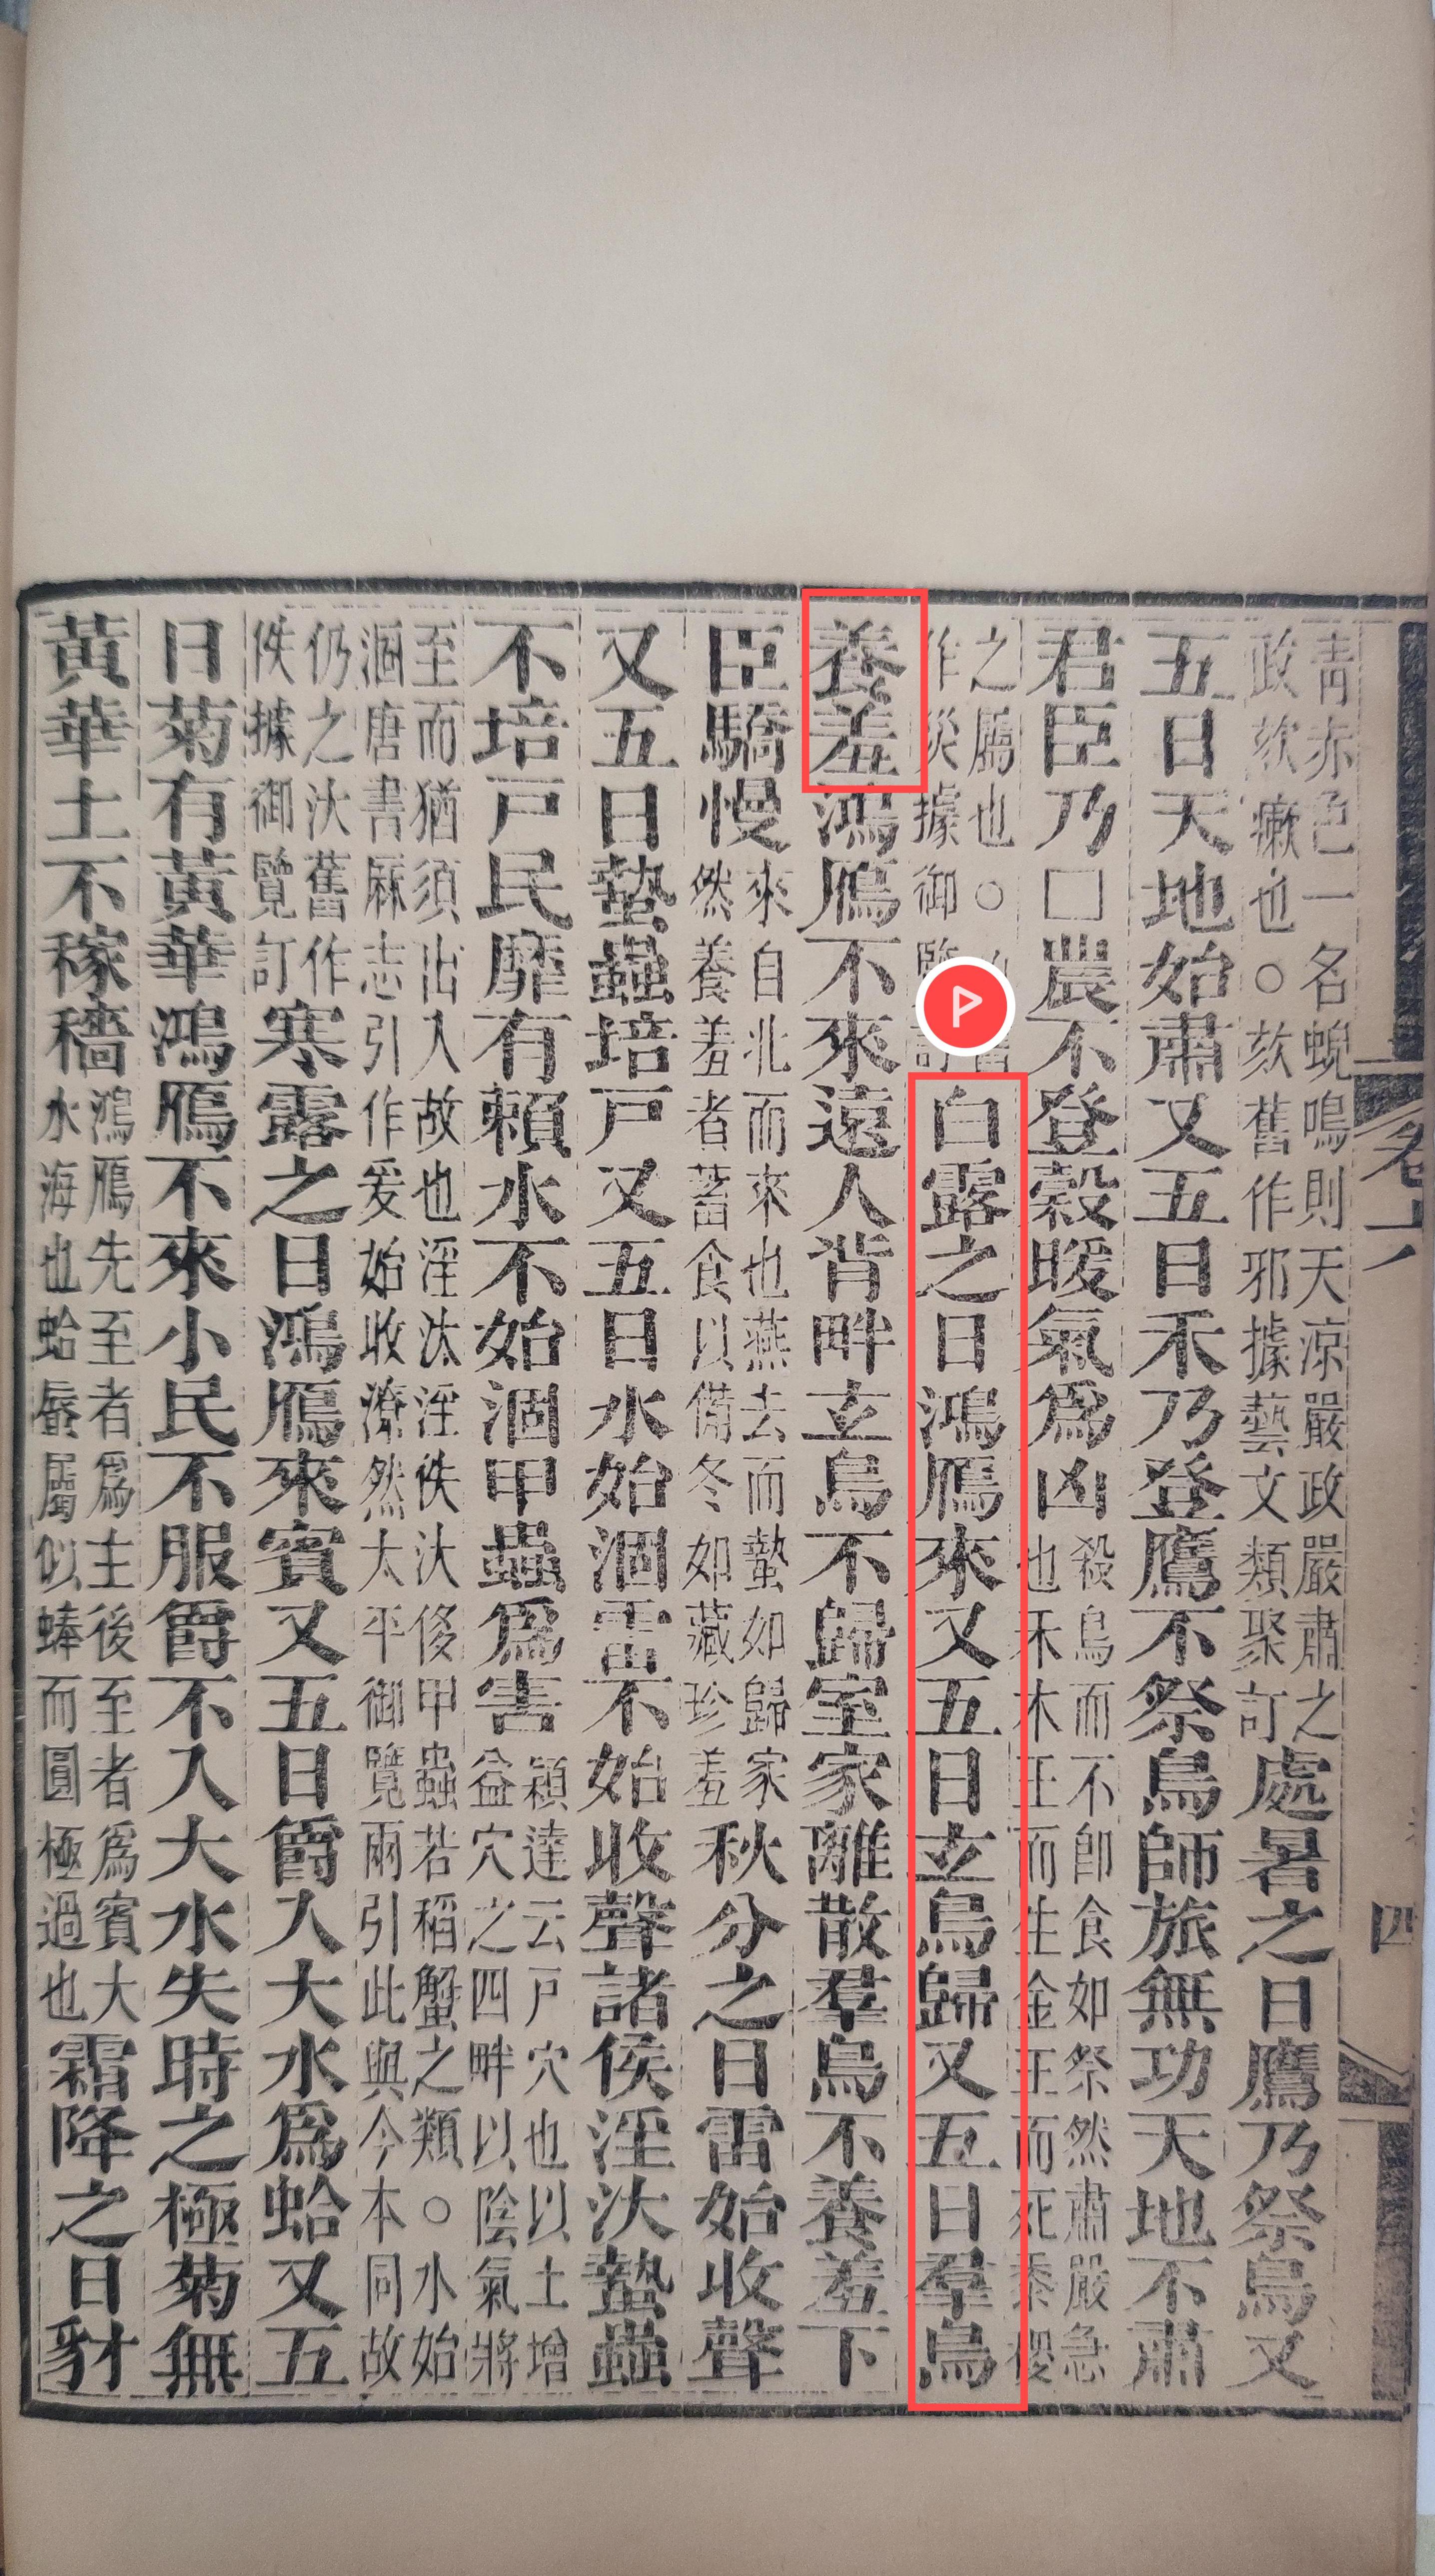 卷六
四
青赤色一名蜺鳴則天涼嚴政嚴肅之
政欬瘷也○欬舊作邪據藝文類聚訂
處暑之日鷹乃祭鳥又
五日天地始肅又五日禾乃登鷹不祭鳥師旅無功天地不肅
君臣乃□農不登穀暖氣爲凶
殺鳥而不即食如祭然肅嚴急
也禾木王而生金王而死黍稷
之屬也○舊
作災據御覽訂
白露之日鴻鴈來又五日玄鳥歸又五日羣鳥
養羞鴻鴈不來遠人背畔玄鳥不歸室家離散羣鳥不養羞下
臣驕慢
來自北而來也燕去而蟄如歸家
然養羞者蓄食以備冬如藏珍羞
秋分之日雷始收聲
又五日蟄蟲培戶又五日水始涸雷不始收聲諸侯淫汏蟄蟲
不培戶民靡有賴水不始涸甲蟲爲害
穎達云戶穴也以土增
益穴之四畔以陰氣將
至而猶須出入故也淫汏淫佚汏侈甲蟲若稻蟹之類○水始
涸唐書厤志引作爰始收潦然太平御覽兩引此與今本同故
仍之汏舊作
佚據御覽訂
寒露之日鴻鴈來賓又五日爵入大水爲蛤又五
日菊有黃華鴻鴈不來小民不服爵不入大水失時之極菊無
黃華土不稼穡
鴻鴈先至者爲主後至者爲賓大
水海也蛤蜃屬似蜯而圓極過也
霜降之日豺